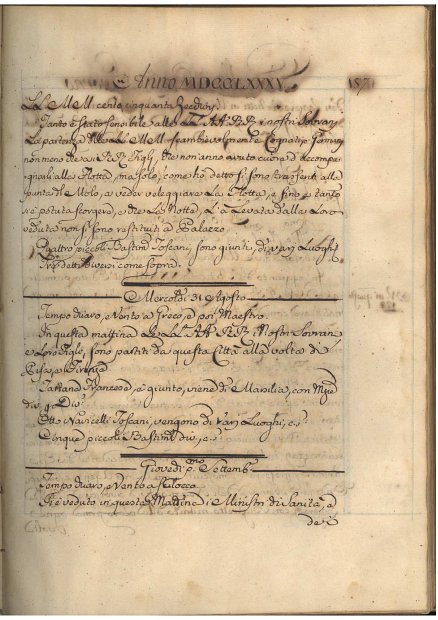 Anno MDCCLXXXV. 157
LL. MM. cento cinquanta Zecchini.
Tanto è stato sensibile alle LL. AA. RR. i nostri Sovrani
La partenza delle LL. MM. scambievolmente Cognati, e Germani,
non meno che a i RR. Figli, che non anno avuto cuore d'accompa-
gnarli alla Flotta, ma solo, come hò detto si sono trasferiti alla
punta del Molo, a veder veleggiare La Flotta, e fino a tanto
si è potuta scorgere, e che La Notte, L'à Levata dalla Loro
veduta non si sono restituti a Palazzo.
Quattro piccoli Bastim.ti Toscani, sono giunti, di varj Luoghi
diversi come sopra.
Mercoledì 31 Agosto
Tempo chiaro, e Vento a Greco, e poi Maestro.
In questa mattina Le LL. AA. RR. i Nostri Sovrani
e Loro Figli, sono partiti da questa Città alla volta di
Pisa, o Firenze
Tartana Francese, è giunta, viene di Marsilia, con Merc.
div. p. Div.
Otto Navicelli Toscani, vengono di varj Luoghi, c. s.
Cinque piccoli Bastim.ti div., c. s.
Giovedì p.mo Settemb.
Tempo chiaro, e Vento a Scilocco.
Si è veduto in questa Mattina i Ministri di Sanità, e
de i